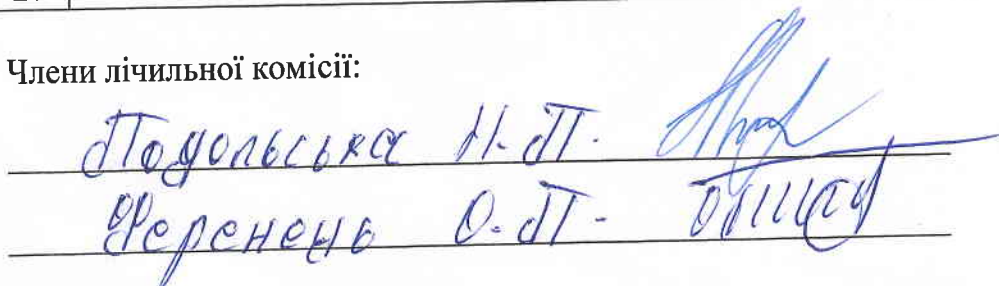 Члени лічильної комісії:
Подольська Н.П.
Ференець О.П.